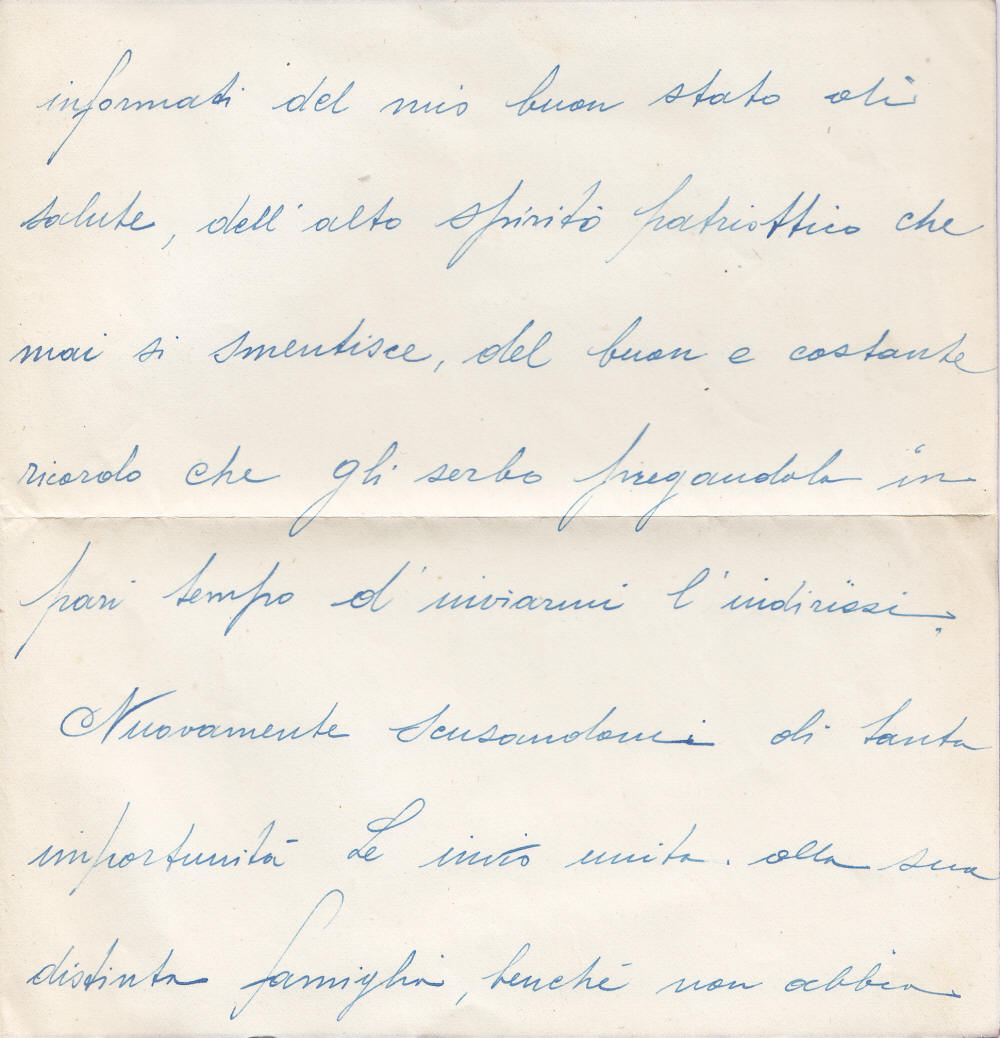 informati del mio buon stato di
salute, dell'alto spirito patriottico che
mai si smentisce, del buon e costante
ricordo che gli serbo pregandola in
pari tempo d'inviarmi l'indirizzi.
Nuovamente scusandomi di tanta
importunità Le invio unita alla sua
distinta famiglia, benché non abbia